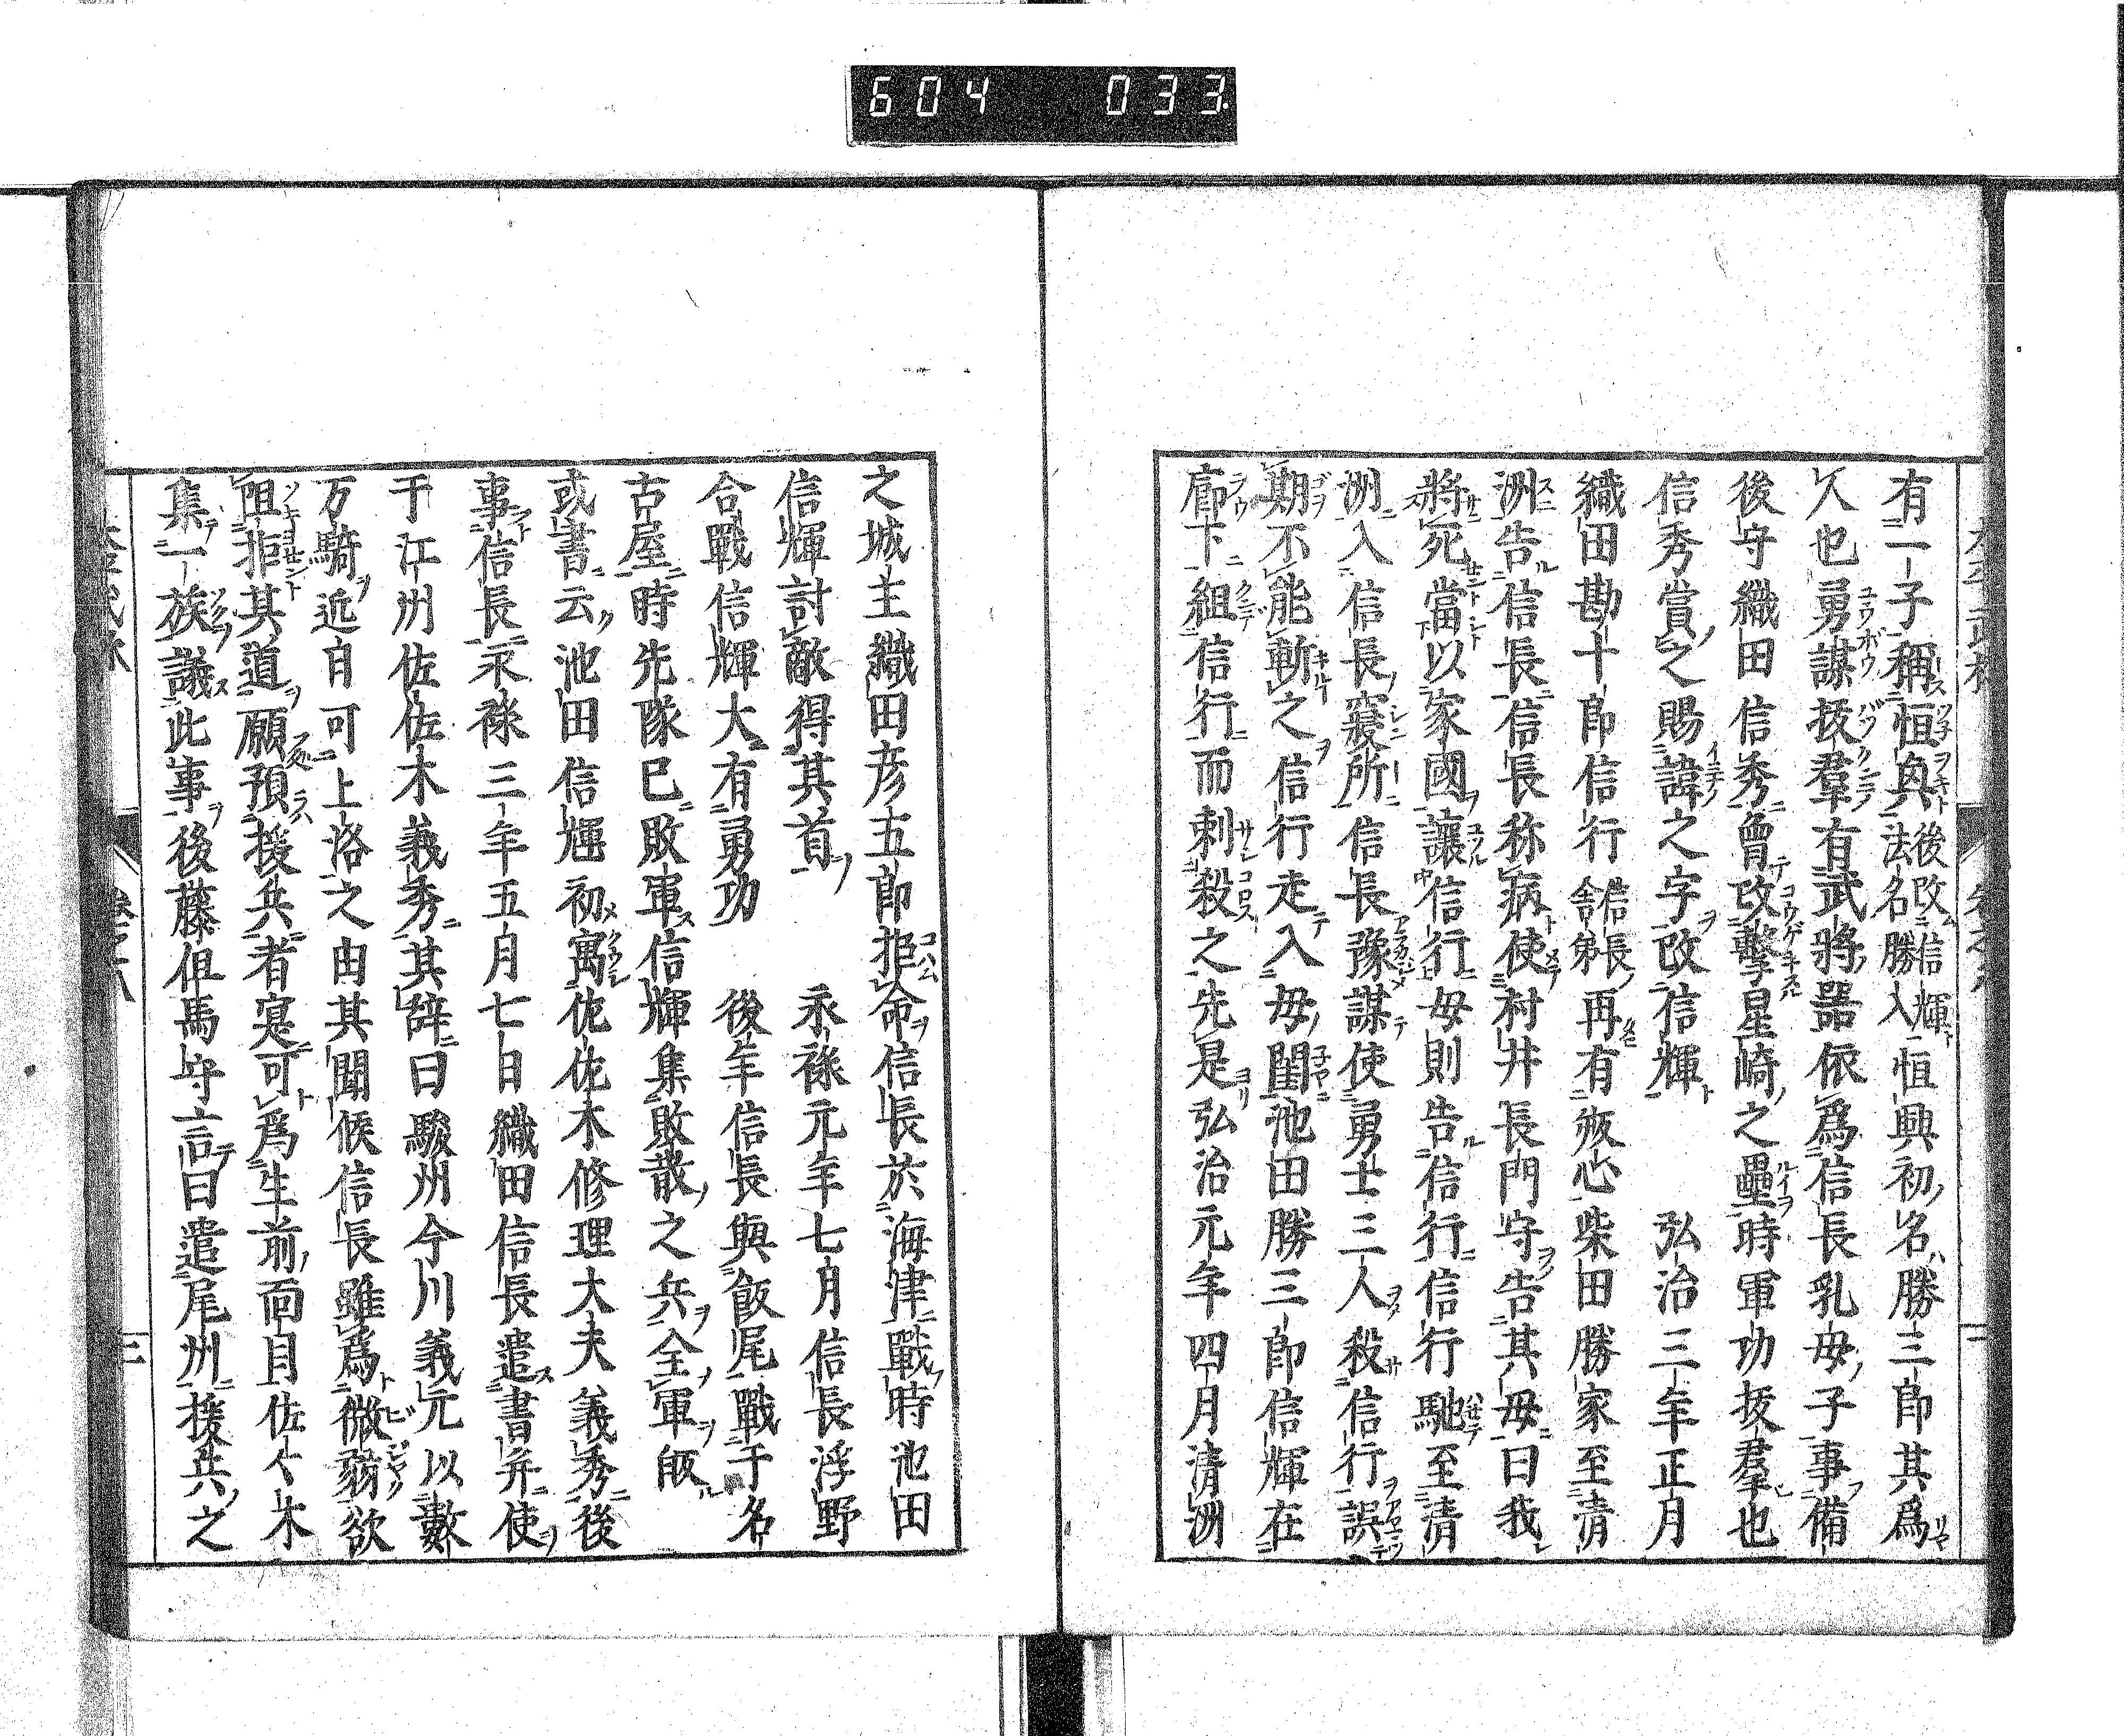 604 033
有一子稱恒興後改信輝法名勝入恒興初名勝三郎其爲
人也勇謀拔群有武將器依爲信長乳母子事備
後守織田信秀曾攻擊星崎之壘時軍功拔羣也
信秀賞之賜諱之字改信輝 弘治三年正月
織田勘十郎信行信長舎弟再有叛心柴田勝家至清
洲告信長信長称病使村井長門守告其母曰我
將死當以家國讓信行母則告信行信行馳至清
洲入信長寢所信長豫謀使勇士三人殺信行誤
期不能斬之信行走入母閨池田勝三郎信輝在
廊下組信行而刺殺之先是弘治元年四月清洲
之城主織田彦五郎拒命信長於海津戰時池田
信輝討敵得其首 永祿元年七月信長浮野
合戰信輝大有勇功 後年信長與飯尾戰于名
古屋時先隊已敗軍信輝集敗散之兵全軍皈
或書云池田信輝初寓佐佐木修理大夫義秀後
事信長永祿三年五月七日織田信長遣書并使
于江州佐佐木義秀其辞曰駿州今川義元以數
万騎近日可上洛之由其聞候信長雖爲微弱欲
阻拒其道願預援兵者寔可爲生前面目佐々木
集一族議此事後藤但馬守言曰遣尾州援兵之